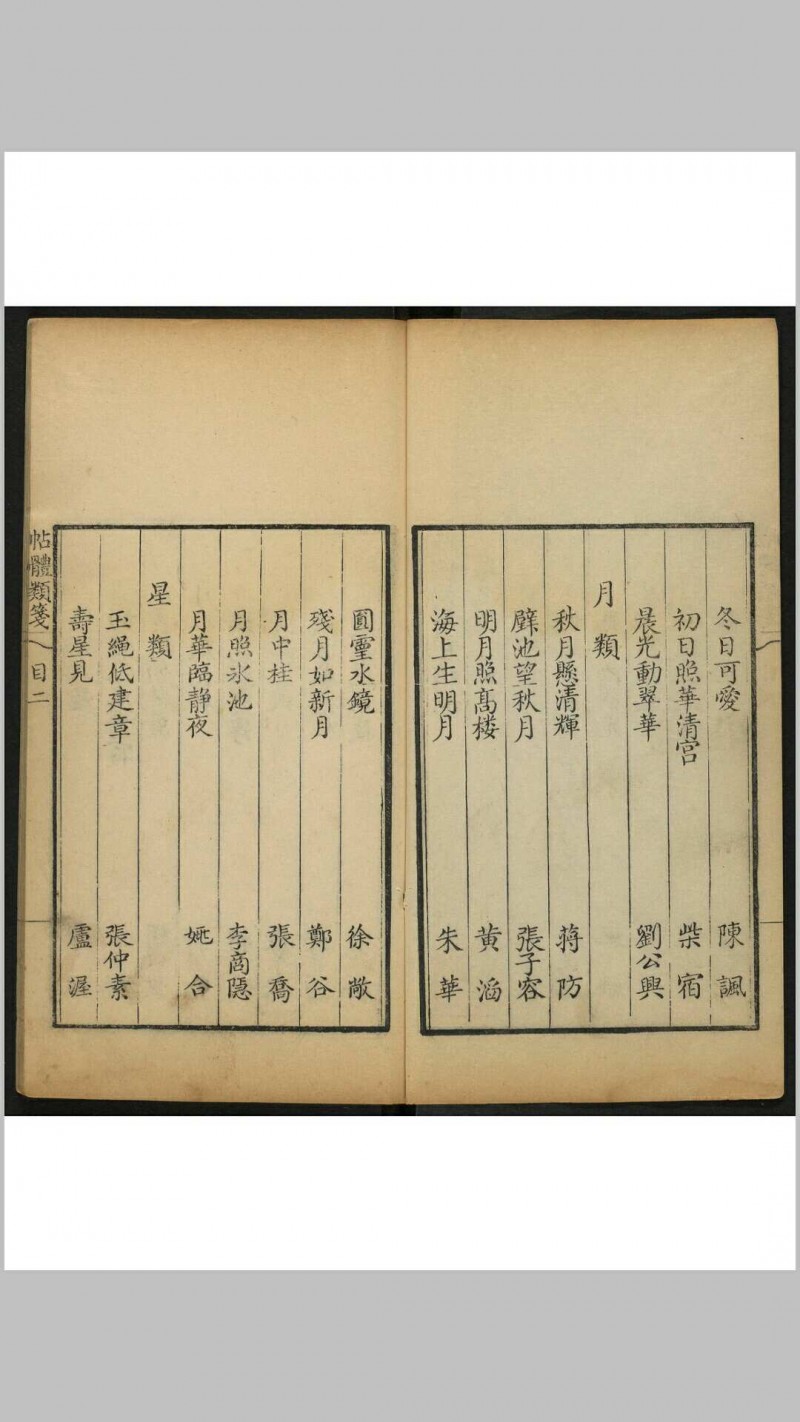 冬日可愛 陳諷
初日照華清宮 柴宿
晨光動翠華 劉公興
月類
秋月懸清輝 蔣防
璧池望秋月 張子容
明月照髙楼 黄滔
海上生明月 朱華
圓靈水鏡 徐敞
殘月如新月 鄭谷
月中桂 張喬
月照氷池 李商隱
月華臨静夜 姚合
星類
玉繩低建章 張仲素
壽星見 盧渥
帖體類箋 目二